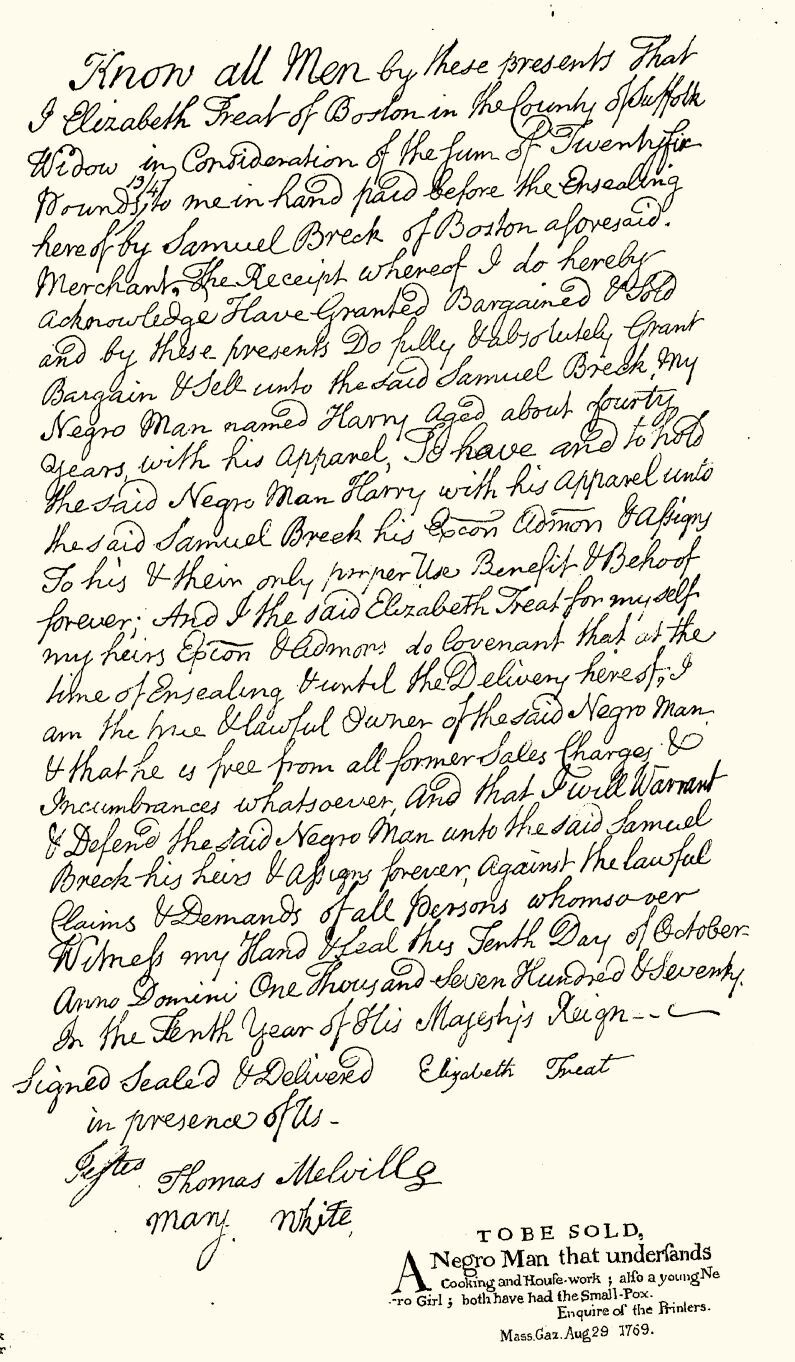 Know all Men by these presents That
I Elizabeth Treat of Boston in the County of Suffolk
Widow in Consideration of the sum of Twentysix
Pounds 13/4 to me in hand paid before the Ensealing
hereof by Samuel Breck of Boston aforesaid.
Merchant, The Receipt whereof I do hereby
acknowledge Have Granted Bargained & Sold
and by these presents Do fully & absolutely Grant
Bargain & Sell unto the said Samuel Breck, My
Negro Man named Harry aged about fourty
years, with his apparel, To have and to hold
the said Negro Man Harry with his apparel unto
the said Samuel Breck his Excon Admon & assigns
To his & their only proper Use Benefit & Behoof
forever; And I the said Elizabeth Treat for my self
my heirs Excon & Admons do Covenant that at the
time of Ensealing & until the Delivery hereof, I
am the true & lawful Owner of the said Negro Man
& that he is free from all former Sales Charges &
Incumbrances whatsoever, And that I will Warrant
& Defend the said Negro Man unto the said Samuel
Breck his heirs & assigns forever, against the lawful
Claims & Demands of all Persons whomsoever
Witness my Hand & Seal this Tenth Day of October
Anno Domini One Thousand Seven Hundred & Seventy.
In the Tenth Year of His Majesty's Reign
Signed Sealed & Delivered Elizabeth Treat
in presence of Us -
Testes
Thomas Melvill
Mary White
TO BE SOLD,
A Negro Man that undersands
Cooking and House-work; also a young Ne
-ro Girl; both have had the Small-Pox.
Enquire of the Printers.
Mass. Gaz. Aug 29 1769.